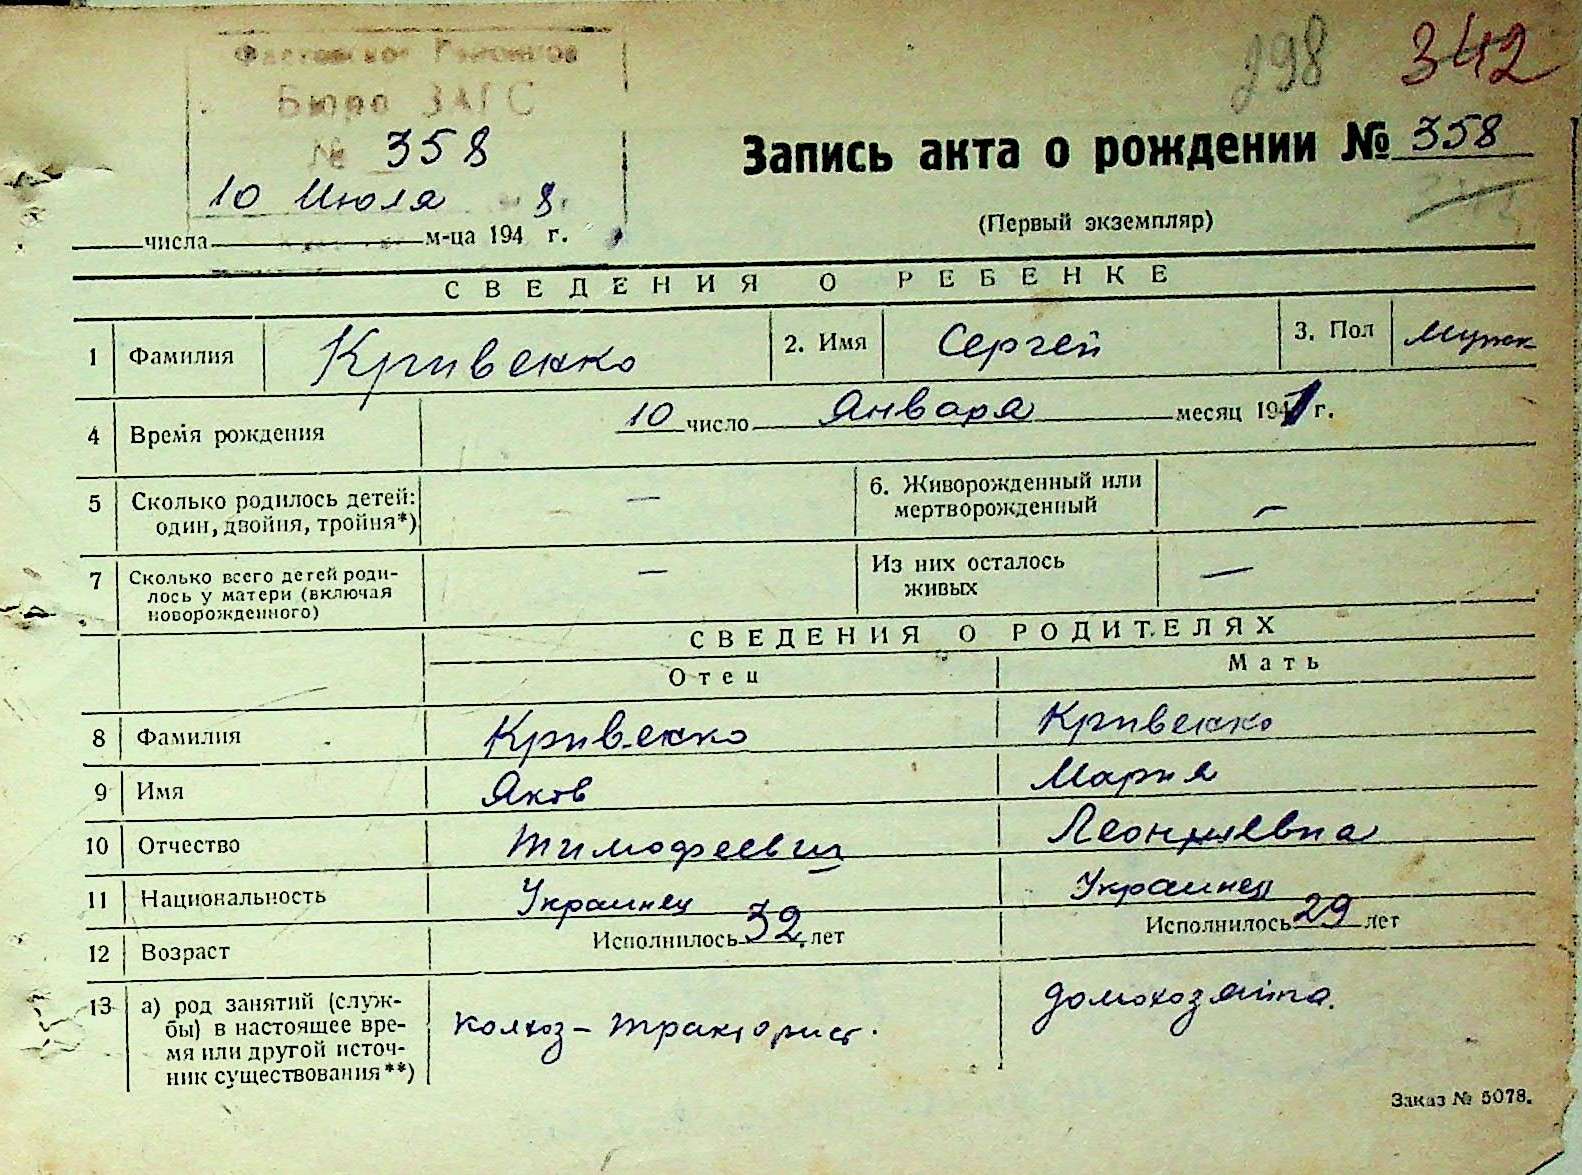 298 342
Фастовское Районное
Бюро ЗАГС
№ 358
10 Июля 8.
числа м-ца 194 г.
Запись акта о рождении № 358
(Первый экземпляр)
СВЕДЕНИЯ О РЕБЕНКЕ
1 Фамилия Кривенко 2. Имя Сергей 3. Пол Мужск
4 Время рождения 10 число Января месяц 1941 г.
5 Сколько родилось детей: один, двойня, тройня*) — 6. Живорожденный или мертворожденный —
7 Сколько всего детей роди-
лось у матери (включая
новорожденного) — Из них осталось живых —
СВЕДЕНИЯ О РОДИТЕЛЯХ
Отец Мать
8 Фамилия Кривенко Кривенко
9 Имя Яков Мария
10 Отчество Тимофеевич Леонтиевна
11 Национальность Украинец Украинец
12 Возраст Исполнилось 32 лет Исполнилось 29 лет
13 а) род занятий (служ-
бы) в настоящее вре-
мя или другой источ-
ник существования**) колхоз - тракторист. домохозяйка.
Заказ № 5078.